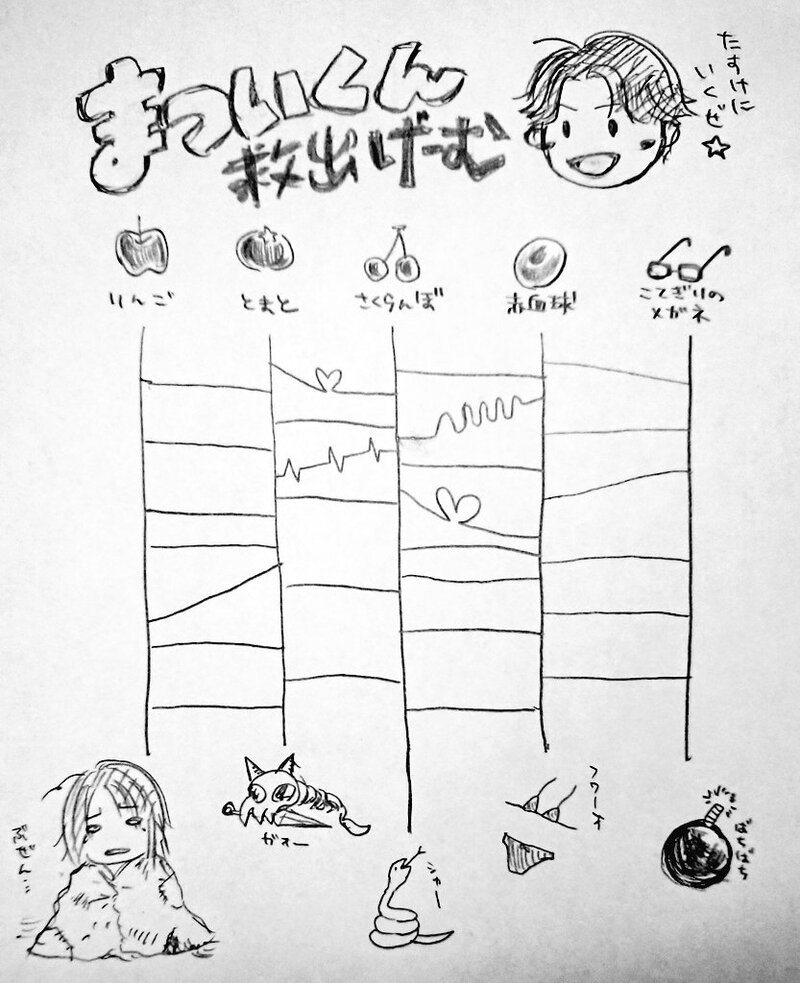 まついくん
救出げーむ
たすけに
いくぜ☆
りんご
とまと
さくらんぼ
赤血球
こてぎりの
メガネ
ぶぜん…
ガオー
シャー
フワーオ
ばちばち